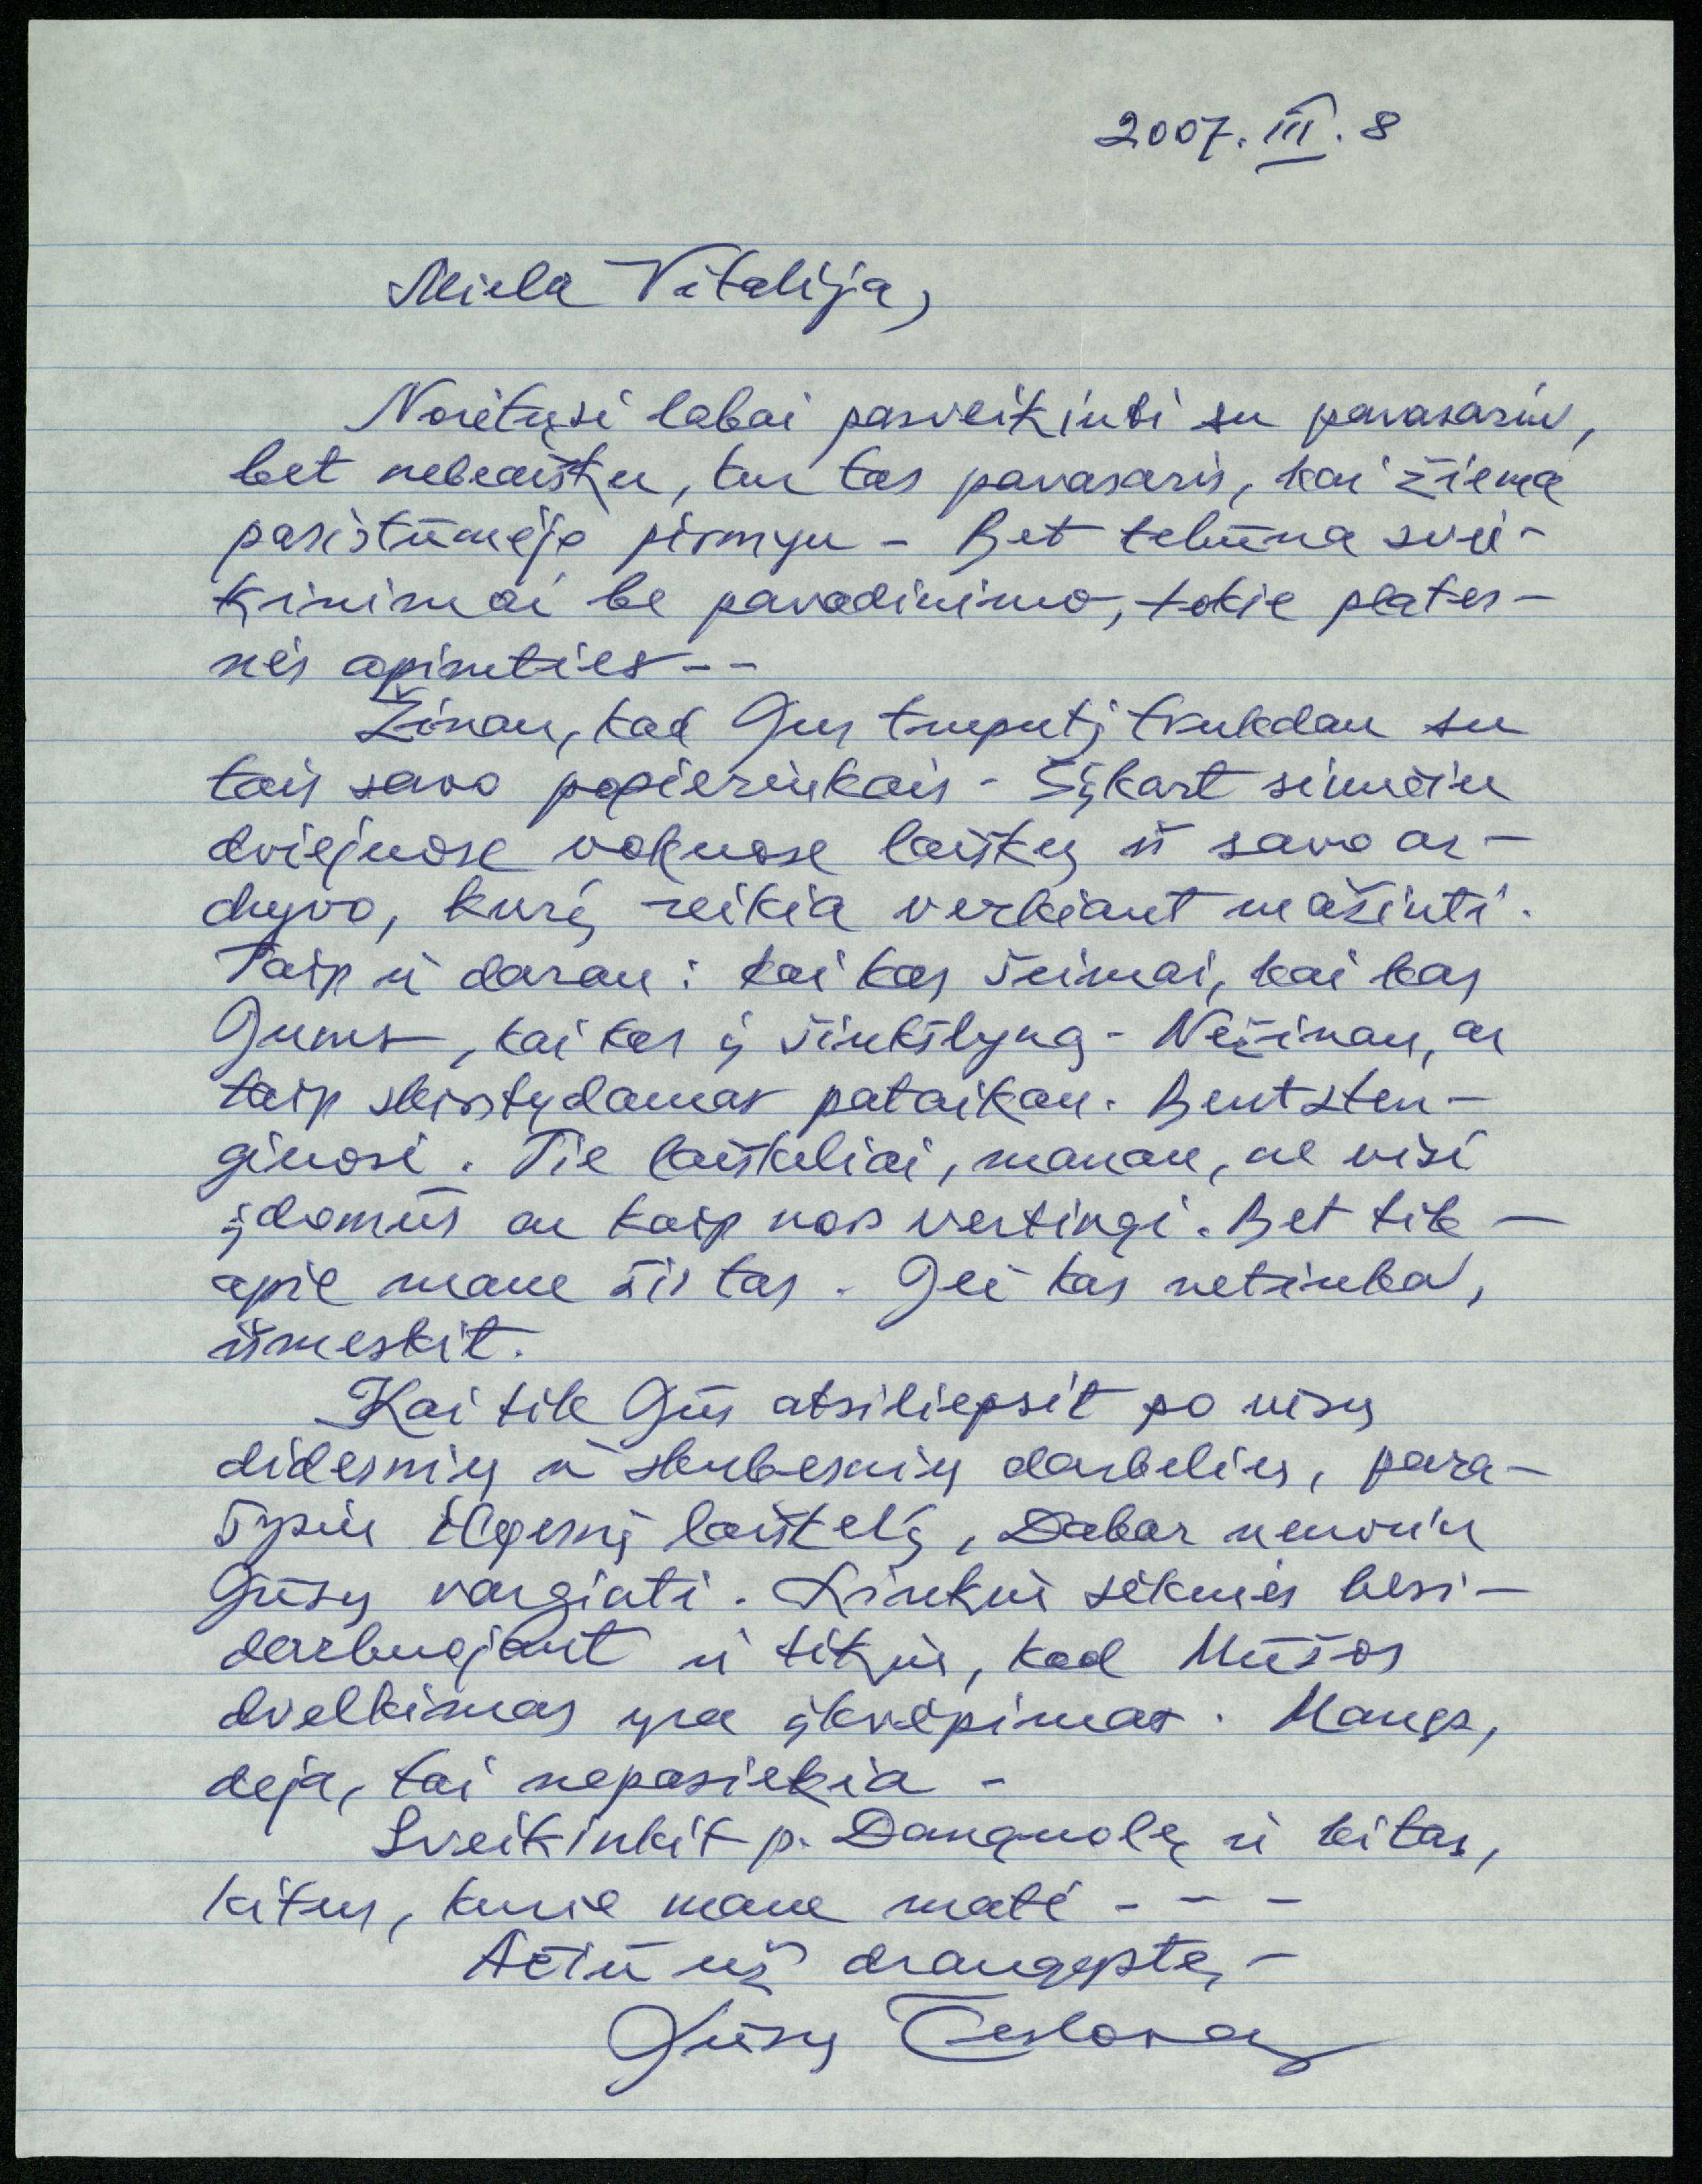 2007. III. 8
Miela Vitalija,
Norėtųsi labai pasveikinti su pavasariu,
bet nebeaišku, kur tas pavasaris, kai žiema
pasistūmėjo pirmyn - Bet tebūna svei-
kinimai be pavadinimo, tokie plates-
nės apimties--
Žinau, kad Jus truputį trukdau su
tais savo popieriukais - Šįkart siunčiu
dviejuose vokuose laiškų iš savo ar-
chyvo, kurį reikia verkiant mažinti.
Taip ir darau: kai kas šeimai, kai kas
Jums, kai kas į šiukšlyną - Nežinau, ar
taip skirstydamas pataikau. Bent sten-
giuosi. Tie laiškeliai, manau, ne visi
įdomūs ar kaip nors vertingi. Bet tik -
apie mane šis tas. Jei kas netinka,
išmeskit.
Kai tik Jūs atsiliepsit po visų
didesnių ir skubesnių darbelių, para-
šysiu ilgesnį laiškelį, Dabar nenoriu
Jūsų varginti. Linkiu sėkmės besi-
darbuojant ir tikiu, kad Mūšos
dvelkimas yra įkvėpimas. Manęs,
deja, tai nepasiekia -
Sveikinkit p. Danguolę ir kitas,
kitus, kurie mane matė - - -
Ačiū už draugystę, -
Jūsų Česlovas